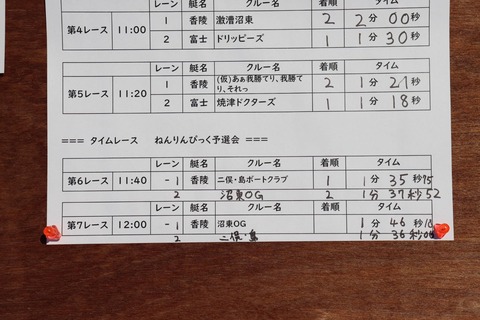 レーン 艇名 クルー名 着順 タイム
第4レース 11:00 1 香陵 激漕沼東 2 2分00秒
2 富士 ドリッピーズ 1 1分30秒
レーン 艇名 クルー名 着順 タイム
第5レース 11:20 1 香陵 (仮)あぁ我勝てり、我勝てり、それっ 2 1分21秒
2 富士 焼津ドクターズ 1 1分18秒
=== タイムレース ねんりんぴっく予選会 ===
レーン 艇名 クルー名 着順 タイム
第6レース 11:40 -1 香陵 二俣・島ボートクラブ 1 1分35秒75
2 沼東OG 2 1分37秒52
レーン 艇名 クルー名 着順 タイム
第7レース 12:00 -1 香陵 沼東OG 1分46秒
2 二俣・島 1分36秒